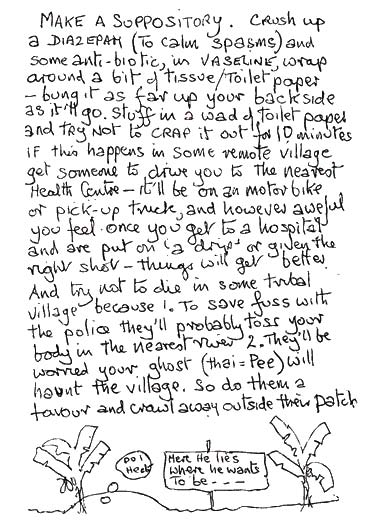 MAKE A SUPPOSITORY. CRUSH up
a DIAZEPAM (To calm spasms) and
some anti-biotic, in VASELINE, wrap
around a bit of tissue/Toilet paper
– bung it as far up your backside
as it'll go. Stuff in a wad of toilet paper
and try NOT to CRAP it out for 10 minutes
if this happens in some remote village
get someone to drive you to the nearest
Health Centre – it'll be on an motor bike
or pick-up truck, and however aweful
you feel once you get to a hospital
and are put on 'a drip' or given the
right shot – things will get better
And try not to die in some tribal
village because 1. To save fuss with
the police they'll probably toss your
body in the nearest river 2. They'll be
worried your ghost (thai = Pee) will
haunt the village. So do them a
favour and crawl away outside their patch
Oo!
Heck
Here He lies
where he wants
To be - - -